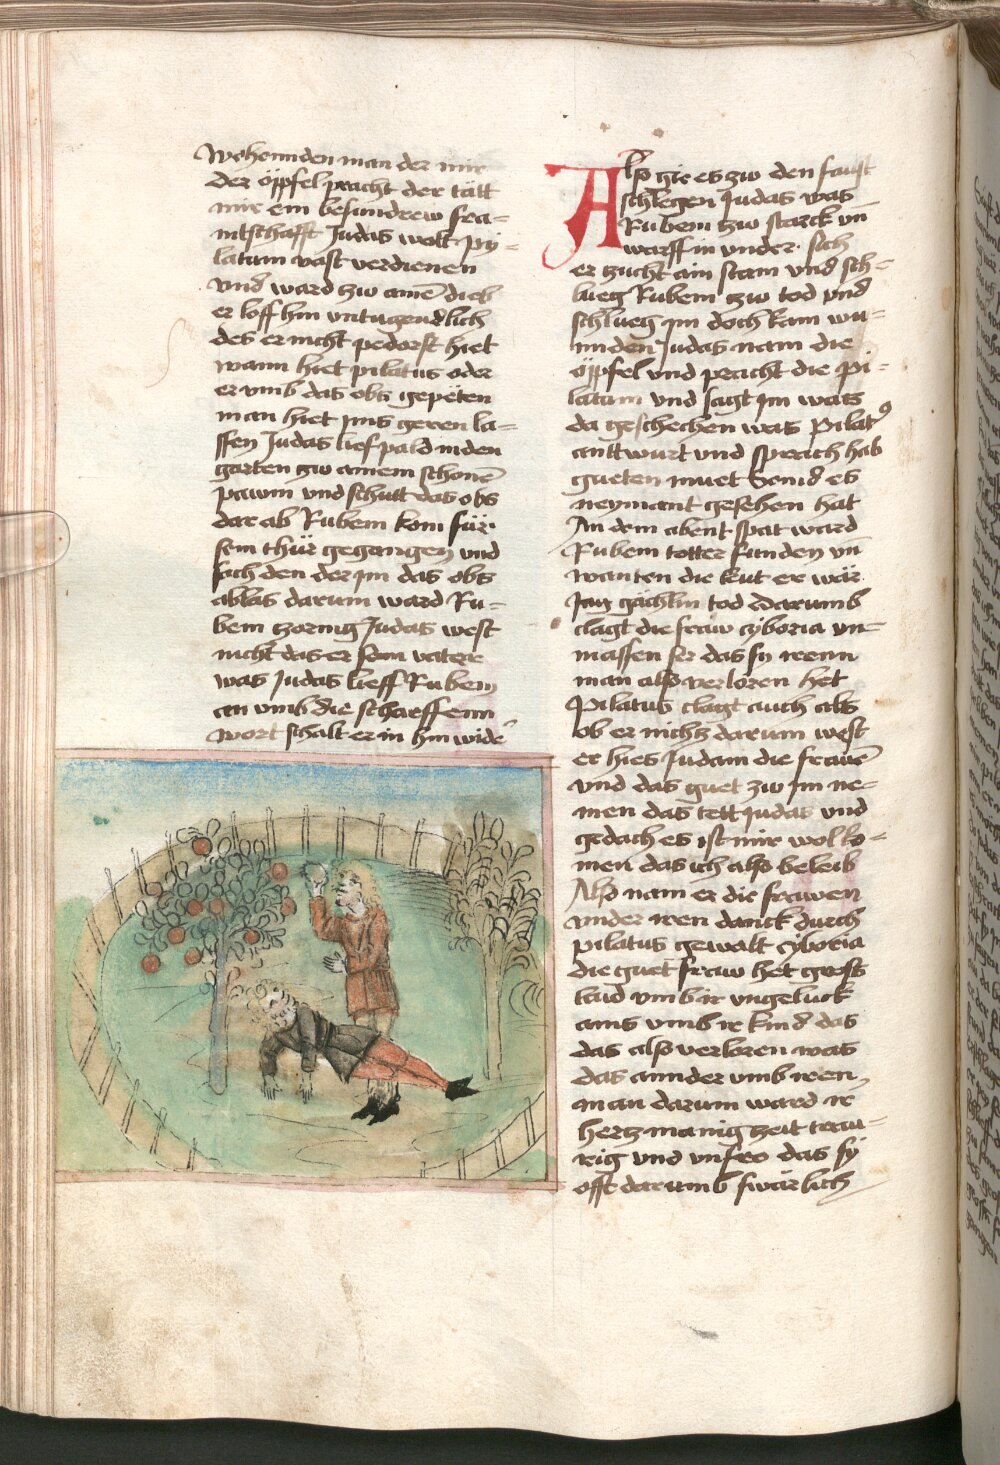 wehennden man der mir
der öpfel pracht der tätt
mir ein besundreew fra=
intschafft Judas wolt py=
latum vast verdienen
Und ward zw ainē dieb
er loff hin untugendlich
des er nicht pedorft hiet
wann hiet pilatus oder
er umb das obs gepeten
man hiet ims geren la=
ssen Judas lief pald in den
garten zw ainem schonē
pawm und schutt das obs
dar ab Rubem kom für
sein thür gegangen und
sach den der im das obs
ablas darum ward Ru=
bem zornig Judas west
nicht das er sein vater
was Judas lieff Rubem
an umb die scharffenn
wort schalt er in hin wide
Also gie es zw den faust
schlegen Judas was
Rubem zw starck un̄
warff in under sich
er zucht ain stain und sch=
lueg Rubem zw tod und
schlueg im doch kain wu=
nnden Judas nam die
öpfel und pracht die pi=
latum und sagt im was
da geschechen was Pilat⁹
anttwurt und sprach hab
gueten muet Seind es
neymant gesehen hat
An dem abent spat ward
Rubem totter funden un̄
wanten die leut er wär
Jach gächlin tod Darumb
clagt die fraw cyboria un=
massen ser das sy iren
man also verloren het
Pilatus clagt auch als
ob er nichtz darum west
er hies Judam die frauē
und das guet zw im ne=
men das tett Judas und
gedach es ist mir wol ko=
men das ich also beleib
Also nam er die frawen
under iren danck durch
pilatus gewalt cyboria
die guet fraw het gross
laid umb ir ungeluck
ains umb ir kind das
das also verloren was
das annder umb iren
man darum ward ir
hertz manig zeit trau=
rig und unfro das sy
offt darumb swärlich